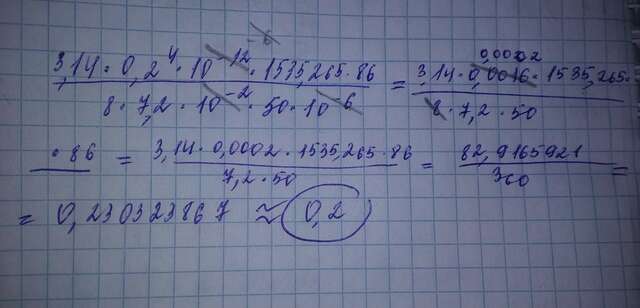 -6
3,14 · 0,2⁴ · 10⁻¹² · 1535,265 · 86 / 8 · 7,2 · 10⁻² · 50 · 10⁻⁶ = 0,0002 3,14 · 0,0016 · 1535,265 / 8 · 7,2 · 50
· 86 = 3,14 · 0,0002 · 1535,265 · 86 / 7,2 · 50 = 82,9165921 / 360 =
= 0,230323867 ≈ 0,2